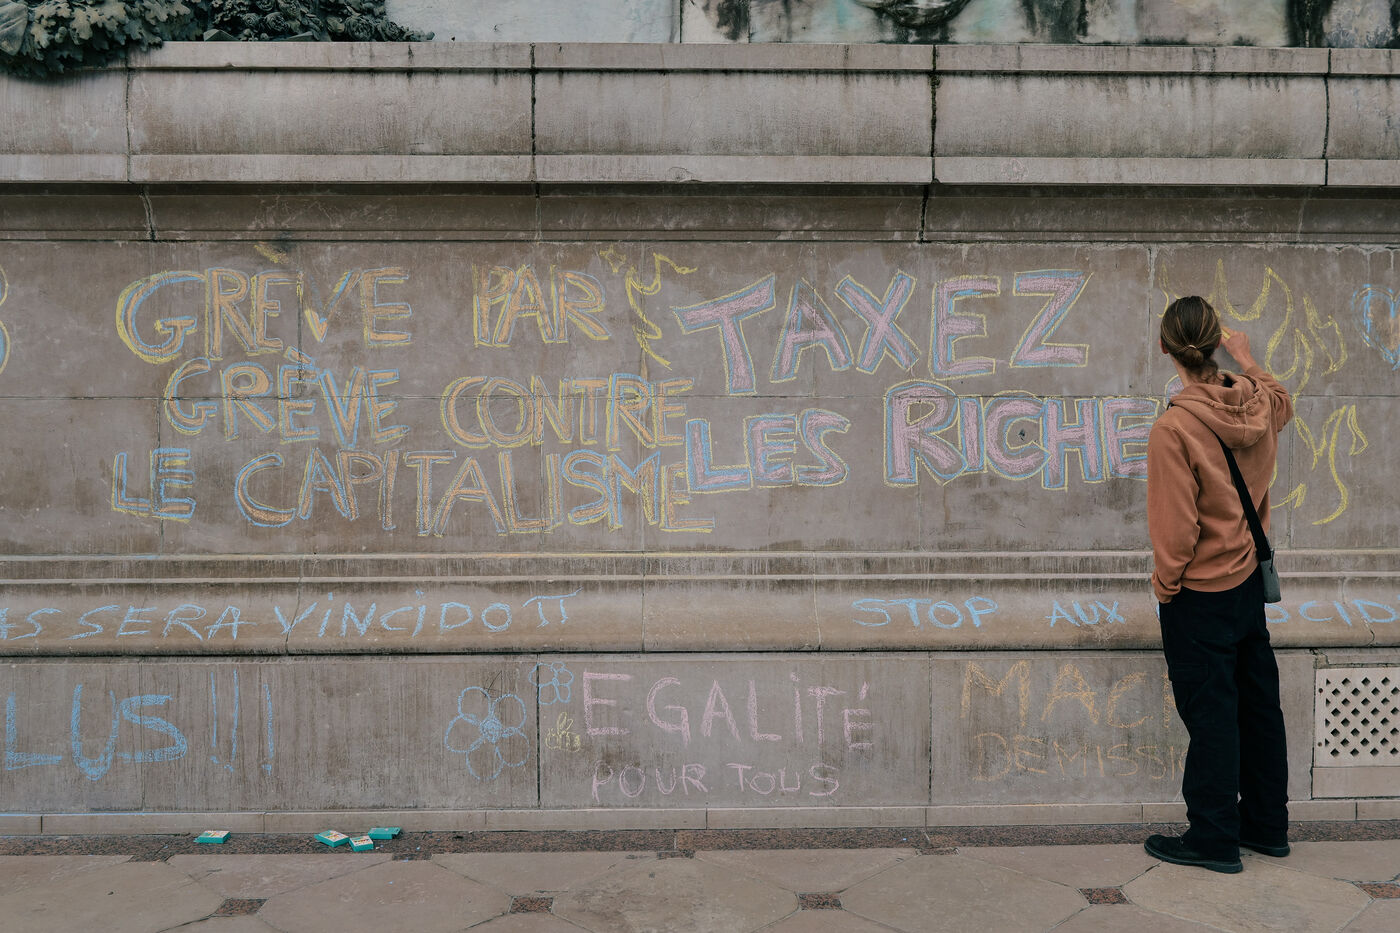 GRÈVE PAR
GRÈVE CONTRE
LE CAPITALISME
TAXEZ
LES RICHE
SERA VINCIDOTT
STOP AUX
LUS!!!
EGALITÉ
POUR TOUS